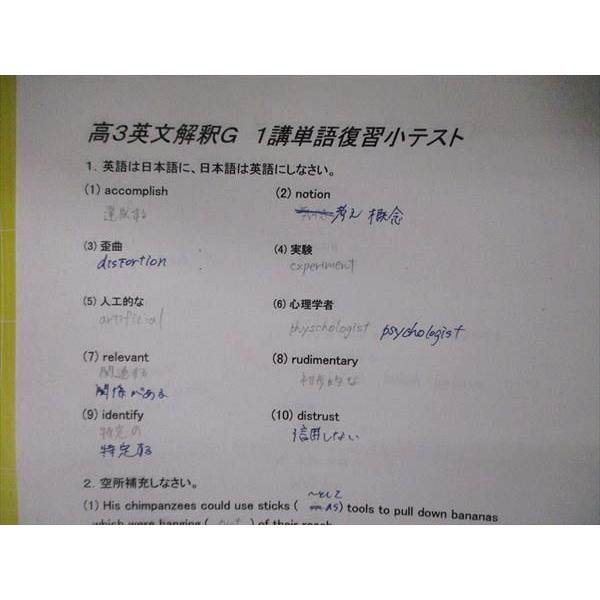 高3英文解釈G 1講単語復習小テスト
1. 英語は日本語に、日本語は英語にしなさい。
(1) accomplish (2) notion
達成する 考え 概念
(3) 歪曲 (4) 実験
distortion experiment
(5) 人工的な (6) 心理学者
artificial physchologist psychologist
(7) relevant (8) rudimentary
関連する 初歩的な
関係がある
(9) identify (10) distrust
特定の 信用しない
特定する
2. 空所補充しなさい。
〜として
(1) His chimpanzees could use sticks ( as) tools to pull down bananas
which were hanging ( out ) of their reach